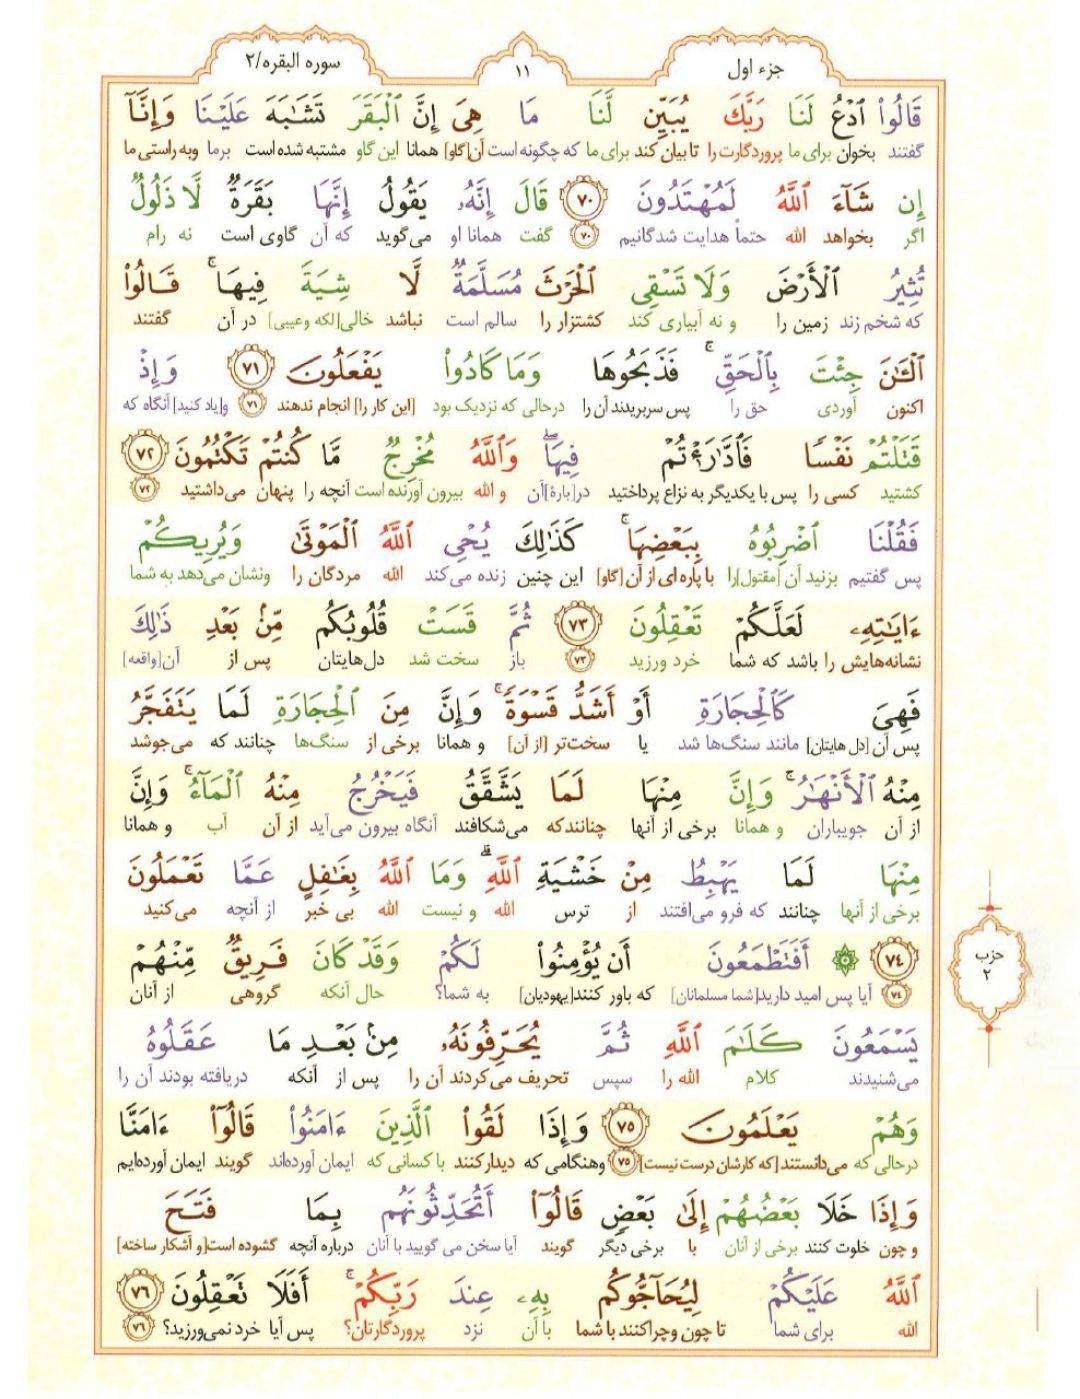 جزء اول
١١
سوره البقره/٢
قَالُوا۟ ٱدْعُ لَنَا رَبَّكَ يُبَيِّن لَّنَا مَا هِىَ إِنَّ ٱلْبَقَرَ تَشَـٰبَهَ عَلَيْنَا وَإِنَّآ
گفتند بخوان برای ما پروردگارت را تا بیان کند برای ما که چگونه است آن[گاو] همانا این گاو مشتبه شده است برما وبه راستی ما
إِن شَآءَ ٱللَّهُ لَمُهْتَدُونَ ٧٠ قَالَ إِنَّهُۥ يَقُولُ إِنَّهَا بَقَرَةٌ لَّا ذَلُولٌ
اگر بخواهد الله حتماً هدایت شدگانیم ٧٠ گفت همانا او می‌گوید که آن گاوی است نه رام
تُثِيرُ ٱلْأَرْضَ وَلَا تَسْقِى ٱلْحَرْثَ مُسَلَّمَةٌ لَّا شِيَةَ فِيهَا ۚ قَـالُوا۟
که شخم زند زمین را و نه آبیاری کند کشتزار را سالم است نباشد خالی[لکه وعیبی] در آن گفتند
ٱلْـَٔـٰنَ جِئْتَ بِٱلْحَقِّ ۚ فَذَبَحُوهَا وَمَا كَادُوا۟ يَفْعَلُونَ ٧١ وَإِذْ
اکنون آوردی حق را پس سربریدند آن را درحالی که نزدیک بود [این کار را] انجام ندهند ٧١ و[یاد کنید] آنگاه که
قَتَلْتُمْ نَفْسًا فَٱدَّٰرَْٰٔتُمْ فِيهَا ۖ وَٱللَّهُ مُخْرِجٌ مَّا كُنتُمْ تَكْتُمُونَ ٧٢
کشتید کسی را پس با یکدیگر به نزاع پرداختید در[بارهٔ]آن و الله بیرون آورنده است آنچه را پنهان می‌داشتید ٧٢
فَقُلْنَا ٱضْرِبُوهُ بِبَعْضِهَا ۚ كَذَٰلِكَ يُحْىِ ٱللَّهُ ٱلْمَوْتَىٰ وَيُرِيكُمْ
پس گفتیم بزنید آن [مقتول]را با پاره ای از آن[گاو] این چنین زنده می‌کند الله مردگان را ونشان می‌دهد به شما
ءَايَـٰتِهِۦ لَعَلَّكُمْ تَعْقِلُونَ ٧٣ ثُمَّ قَسَتْ قُلُوبُكُم مِّنۢ بَعْدِ ذَٰلِكَ
نشانه‌هایش را باشد که شما خرد ورزید ٧٣ باز سخت شد دل‌هایتان پس از آن[واقعه]
فَهِىَ كَٱلْحِجَارَةِ أَوْ أَشَدُّ قَسْوَةً ۚ وَإِنَّ مِنَ ٱلْحِجَارَةِ لَمَا يَتَفَجَّرُ
پس آن [دل هایتان] مانند سنگ‌ها شد یا سخت‌تر [از آن] و همانا برخی از سنگ‌ها چنانند که می‌جوشد
مِنْهُ ٱلْأَنْهَـٰرُ ۚ وَإِنَّ مِنْهَا لَمَا يَشَّقَّقُ فَيَخْرُجُ مِنْهُ ٱلْمَآءُ ۚ وَإِنَّ
از آن جویباران و همانا برخی از آنها چنانندکه می‌شکافند آنگاه بیرون می‌آید از آن آب و همانا
مِنْهَا لَمَا يَهْبِطُ مِنْ خَشْيَةِ ٱللَّهِ ۗ وَمَا ٱللَّهُ بِغَـٰفِلٍ عَمَّا تَعْمَلُونَ
برخی از آنها چنانند که فرو می‌افتند از ترس الله و نیست الله بی خبر از آنچه می‌کنید
٧٤ ۞ أَفَتَطْمَعُونَ أَن يُؤْمِنُوا۟ لَكُمْ وَقَدْ كَانَ فَرِيقٌ مِّنْهُمْ
٧٤ آیا پس امید دارید[شما مسلمانان] که باور کنند[یهودیان] به شما؟ حال آنکه گروهی از آنان
حزب
٢
يَسْمَعُونَ كَلَـٰمَ ٱللَّهِ ثُمَّ يُحَرِّفُونَهُۥ مِنۢ بَعْدِ مَا عَقَلُوهُ
می‌شنیدند کلام الله را سپس تحریف می‌کردند آن را پس از آنکه دریافته بودند آن را
وَهُمْ يَعْلَمُونَ ٧٥ وَإِذَا لَقُوا۟ ٱلَّذِينَ ءَامَنُوا۟ قَالُوٓا۟ ءَامَنَّا
درحالی که می‌دانستند [که کارشان درست نیست] ٧٥ وهنگامی که دیدار کنند با کسانی که ایمان آورده‌اند گویند ایمان آورده‌ایم
وَإِذَا خَلَا بَعْضُهُمْ إِلَىٰ بَعْضٍ قَالُوٓا۟ أَتُحَدِّثُونَهُم بِمَا فَتَحَ
و چون خلوت کنند برخی از آنان با برخی دیگر گویند آیا سخن می گویید با آنان درباره آنچه گشوده است[و آشکار ساخته]
ٱللَّهُ عَلَيْكُمْ لِيُحَآجُّوكُم بِهِۦ عِندَ رَبِّكُمْ ۚ أَفَلَا تَعْقِلُونَ ٧٦
الله برای شما تا چون وچرا کنند با شما با آن نزد پروردگارتان؟ پس آیا خرد نمی‌ورزید؟ ٧٦